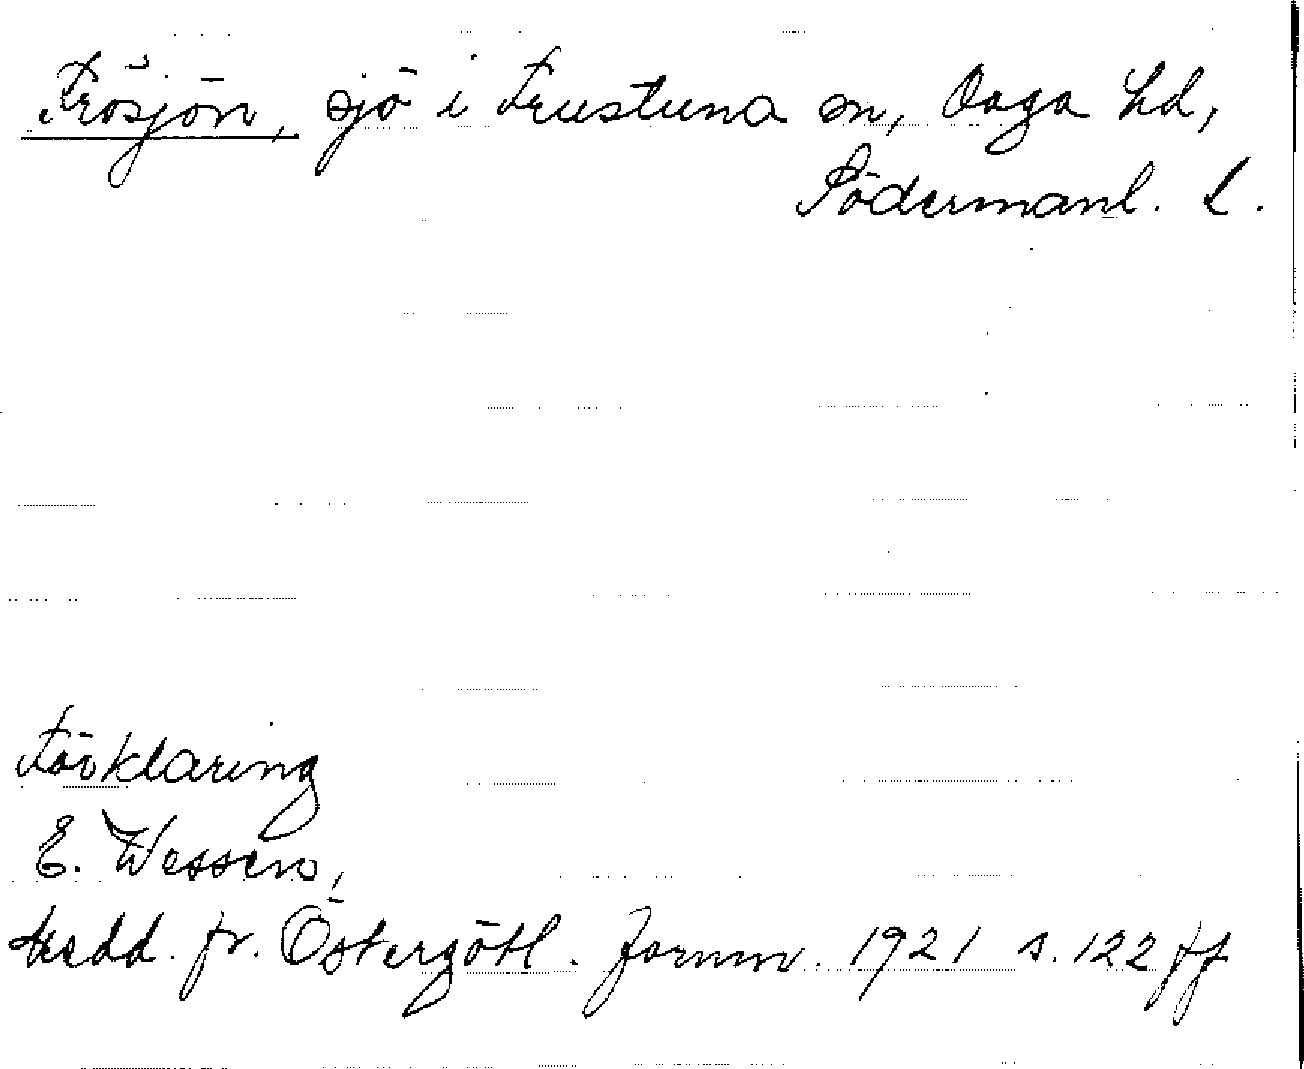 Frösjön, sjö i Frustuna sn, Daga hd,
Södermanl. l.
Förklaring
E. Wessen,
Medd. fr. Östergötl. fornm. 1921 s. 122 ff